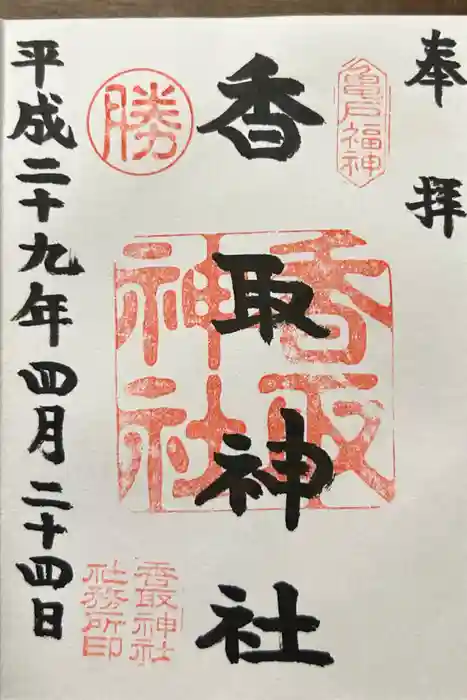 奉拝
亀戸福神
香取神社
香取神社
勝
香取神社
社務所印
平成二十九年四月二十四日